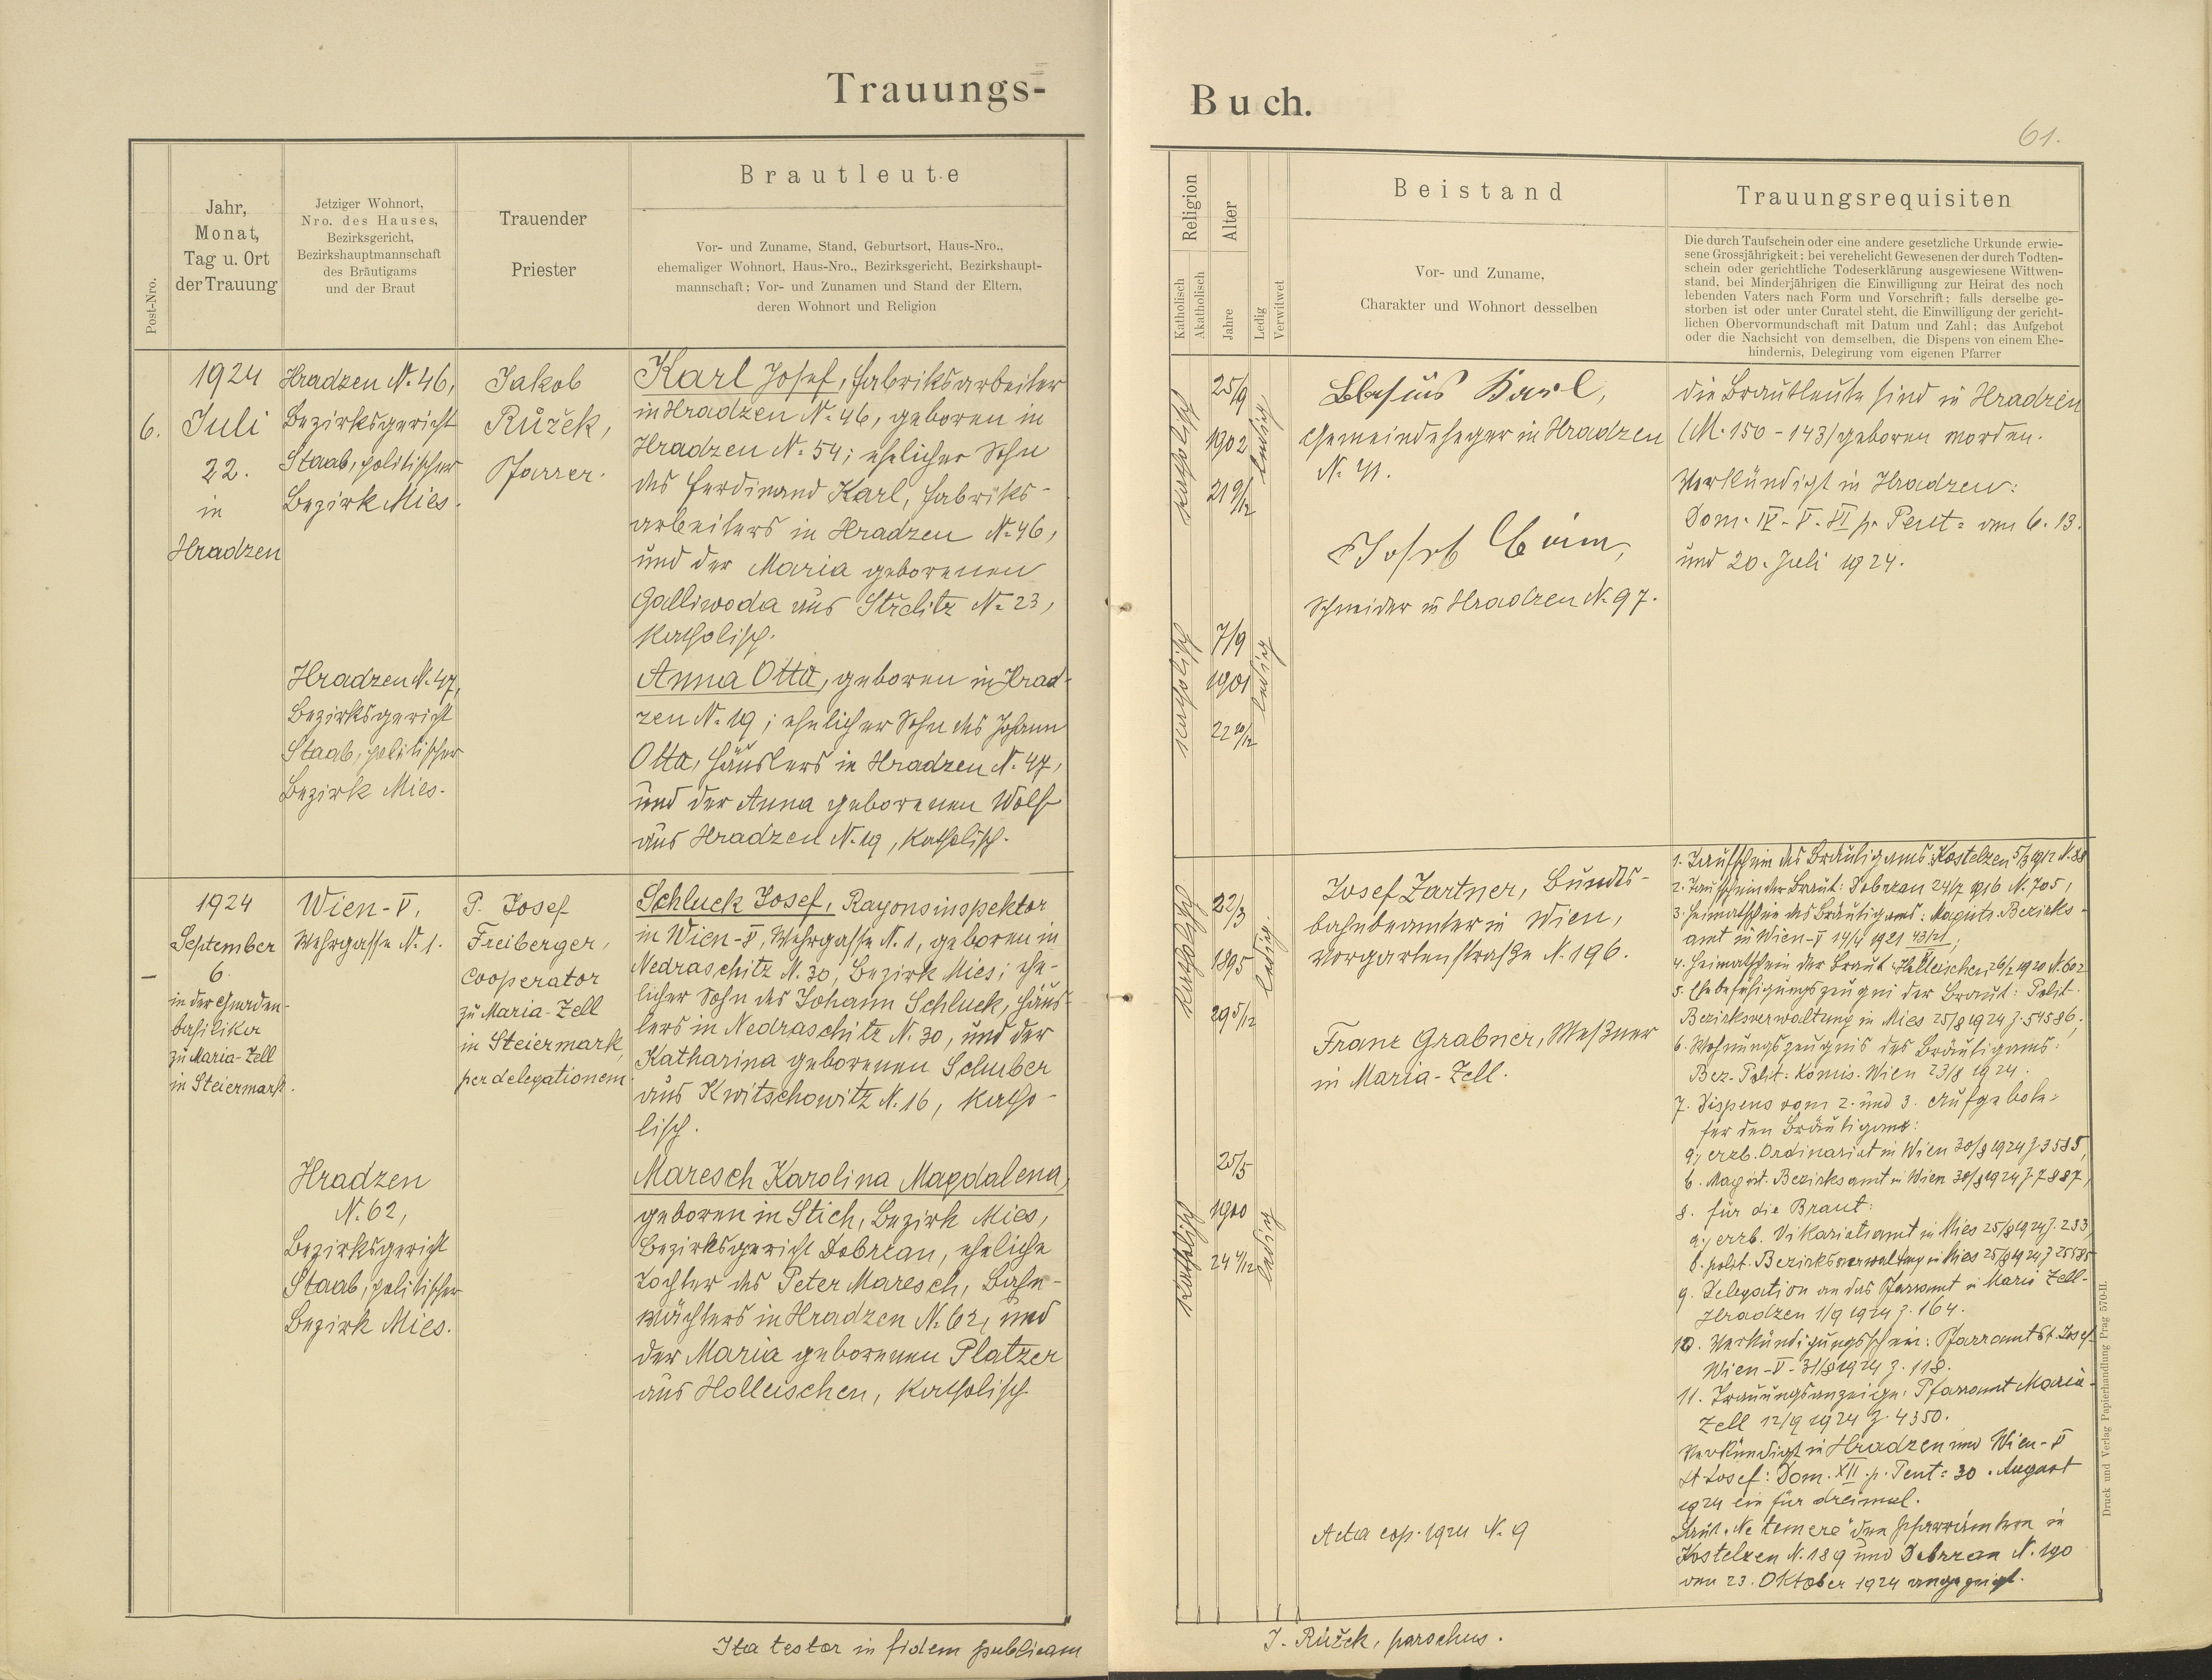 Trauungs-
Post-Nro.
Jahr,
Monat,
Tag u. Ort
der Trauung
Jetziger Wohnort,
Nro. des Hauses,
Bezirksgericht,
Bezirkshauptmannschaft
des Bräutigams
und der Braut
Trauender
Priester
Brautleute
Vor- und Zuname, Stand, Geburtsort, Haus-Nro.,
ehemaliger Wohnort, Haus-Nro., Bezirksgericht, Bezirkshaupt-
mannschaft; Vor- und Zunamen und Stand der Eltern,
deren Wohnort und Religion
6.
1924
Juli
22.
in
Hradzen
Hradzen N. 46,
Bezirksgericht
Staab, politischer
Bezirk Mies.
Jakob
Růžek,
Pfarrer.
Karl Josef, Fabriksarbeiter
in Hradzen N. 46, geboren in
Hradzen N. 54; ehelicher Sohn
des Ferdinand Karl, Fabriks-
arbeiters in Hradzen N. 46,
und der Maria geborenen
Galliwoda aus Střelitz N. 23,
katholisch.
Hradzen N. 47,
Bezirksgericht
Staab, politischer
Bezirk Mies.
Anna Otta, geboren in Hrad-
zen N. 19; ehelicher Sohn des Johann
Otta, Häuslers in Hradzen N. 47,
und der Anna geborenen Wolf
aus Hradzen N. 19, katholisch.
-
1924
September
6.
in der Gnaden-
basilika
zu Maria-Zell
in Steiermark.
Wien-V,
Wehrgasse N. 1.
P. Josef
Freiberger,
Cooperator
zu Maria-Zell
in Steiermark,
per delegationem.
Schluck Josef, Rayonsinspektor
in Wien-V, Wehrgasse N. 1, geboren in
Nedraschitz N. 30, Bezirk Mies; ehe-
licher Sohn des Johann Schluck, Häus-
lers in Nedraschitz N. 30, und der
Katharina geborenen Schuber
aus Kwitschowitz N. 16, katho-
lisch.
Hradzen
N. 62,
Bezirksgericht
Staab, politischer
Bezirk Mies.
Maresch Karolina Magdalena,
geboren in Stich, Bezirk Mies,
Bezirksgericht Dobrzan, eheliche
Tochter des Peter Maresch, Bahn-
wächters in Hradzen N. 62, und
der Maria geborenen Platzer
aus Holleischen, katholisch
Ita testor in fidem publicam
Buch.
61.
Religion
Katholisch
Akatholisch
Alter
Jahre
Ledig
Verwitwet
Beistand
Vor- und Zuname,
Charakter und Wohnort desselben
Trauungsrequisiten
Die durch Taufschein oder eine andere gesetzliche Urkunde erwie-
sene Grossjährigkeit; bei verehelicht Gewesenen der durch Todten-
schein oder gerichtliche Todeserklärung ausgewiesene Wittwen-
stand, bei Minderjährigen die Einwilligung zur Heirat des noch
lebenden Vaters nach Form und Vorschrift; falls derselbe ge-
storben ist oder unter Curatel steht, die Einwilligung der gericht-
lichen Obervormundschaft mit Datum und Zahl; das Aufgebot
oder die Nachsicht von demselben, die Dispens von einem Ehe-
hindernis, Delegirung vom eigenen Pfarrer
katholisch
25/9
1902
21 9/12
ledig
Blasius Karl,
Gemeindeheger in Hradzen
Josef
Schneider in Hradzen N. 97.
die Brautleute sind in Hradzen
(M. 150 - 143) geboren worden.
Verkündigt in Hradzen:
Dom. IV. V. VI p. Pent. am 6. 13.
und 20. Juli 1924.
katholisch
7/9
1901
22 10/12
ledig
katholisch
22/3
1895
29 5/12
ledig
Josef Zartner, Bundes-
bahnbeamter in Wien,
Vorgartenstraße N. 196.
Franz Grabner, Meßner
in Maria-Zell.
katholisch
25/5
1900
24 4/12
ledig
1. Taufschein des Bräutigams: Kostelzen 5/3 1912 N. 88
2. Taufschein der Braut: Dobrzan 24/7 1916 N. 705,
3. Heimatschein des Bräutigams: Magistr. Bezirks-
amt in Wien-V 14/4 1921 43/21;
4. Heimatschein der Braut: Holleischen 26/2 1920 N. 602
5. Ehebefähigungszeugni der Braut: Polit.
Bezirksverwaltung in Mies 25/8 1924 Z. 54586;
6. Wohnungszeugnis des Bräutigams:
Bez.-Polit: Komis. Wien 23/8 1924.
7. Dispens vom 2. und 3. Aufgebote
für den Bräutigam:
a, erzb. Ordinariat in Wien 30/8 1924 Z. 3585,
b. Magist. Bezirksamt in Wien 30/8 1924 Z. 7887,
8. für die Braut:
a, erzb. Vikariatsamt in Mies 25/8 1924 Z. 233
b. polit. Bezirksverwaltung in Mies 25/8 1924 Z
9. Delegation an das Pfarramt in Maria Zell-
Hradzen 1/9 1924 Z. 164.
10. Verkündigungsschein: Pfarramt St. Josef
Wien-V- 31/8 1924 Z. 118.
11. Trauungsanzeige: Pfarramt Maria-
Zell 12/9 1924 Z. 4350.
Verkündigt in Hradzen und Wien-V
St Josef: Dom. XII. p. Pent: 30. August
1924 ein für dreimal.
Laut „Ne temere" den Pfarrämtern in
Kostelzen N. 189 und Dobrzan N. 190
am 23. Oktober 1924 angezeigt.
Acta cop. 1924 N. 9
J. Růžek, parochus.
Druck und Verlag Papierhandlung Prag 570-II.